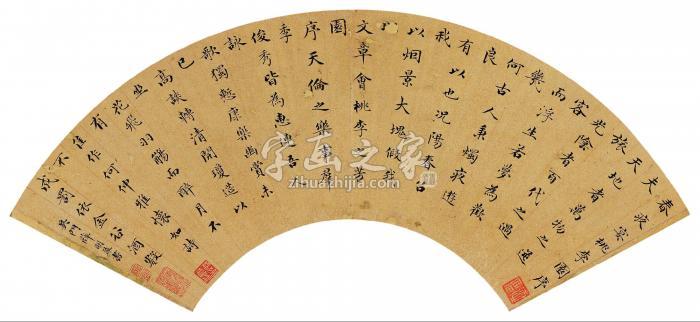 春夜宴桃李園序
夫天地者萬物之逆
旅光陰者百代之過
客而浮生若夢為歡
幾何古人秉燭夜遊
良有以也況陽春召
我以烟景大塊假我
以文章會桃李之芳
園序天倫之樂事羣
季俊秀皆為惠連吾
詠歌獨慙康樂幽賞未
已高談轉清開瓊筵以
坐花飛羽觴而醉月不
有佳作何伸雅懷如詩
不成罰依金谷酒數
吳門
字画之家
zihuazhijia.com